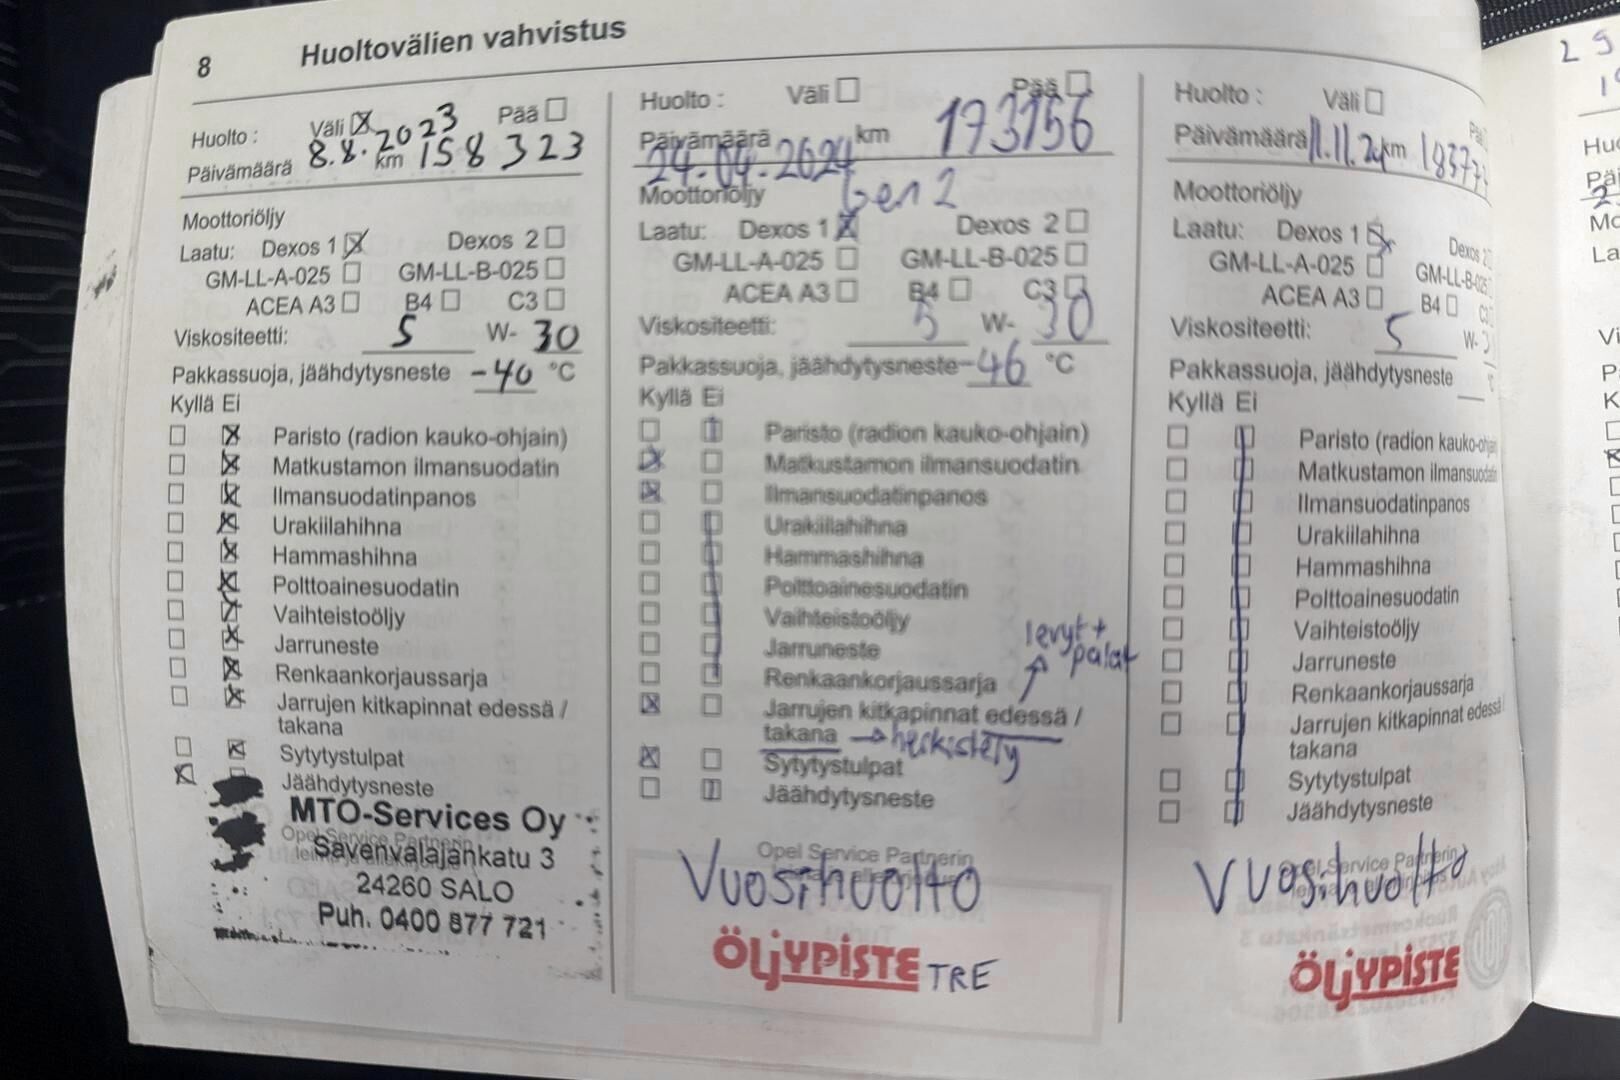 8
Huoltovälien vahvistus
Huolto : Väli ☒ Pää ☐
Päivämäärä 8.8.2023 km 158 323
Moottoriöljy
Laatu: Dexos 1 ☒ Dexos 2 ☐
GM-LL-A-025 ☐ GM-LL-B-025 ☐
ACEA A3 ☐ B4 ☐ C3 ☐
Viskositeetti: 5 W- 30
Pakkassuoja, jäähdytysneste -40 °C
Kyllä Ei
☐ ☒ Paristo (radion kauko-ohjain)
☐ ☒ Matkustamon ilmansuodatin
☐ ☒ Ilmansuodatinpanos
☐ ☒ Urakiilahihna
☐ ☒ Hammashihna
☐ ☒ Polttoainesuodatin
☐ ☒ Vaihteistoöljy
☐ ☒ Jarruneste
☐ ☒ Renkaankorjaussarja
☐ ☒ Jarrujen kitkapinnat edessä /
takana
☐ ☒ Sytytystulpat
☒ ☐ Jäähdytysneste
MTO-Services Oy
Opel Service Partnerin
Savenvalajankatu 3
24260 SALO
Puh. 0400 877 721
Huolto : Väli ☐ Pää ☐
Päivämäärä 24.04.2024 km 173156
Moottoriöljy Gen 2
Laatu: Dexos 1 ☒ Dexos 2 ☐
GM-LL-A-025 ☐ GM-LL-B-025 ☐
ACEA A3 ☐ B4 ☐ C3 ☐
Viskositeetti: 5 W- 30
Pakkassuoja, jäähdytysneste -46 °C
Kyllä Ei
Paristo (radion kauko-ohjain)
☒ ☐ Matkustamon ilmansuodatin
☒ ☐ Ilmansuodatinpanos
Urakiilahihna
Hammashihna
Polttoainesuodatin
Vaihteistoöljy
Jarruneste
levyt +
palat
Renkaankorjaussarja
☒ ☐ Jarrujen kitkapinnat edessä /
takana → herkistely
☒ ☐ Sytytystulpat
Jäähdytysneste
Opel Service Partnerin
Vuosihuolto
ÖLJYPISTE TRE
Huolto : Väli ☐
Päivämäärä 11.11.24 km
Moottoriöljy
Laatu: Dexos 1 ☒ Dexos 2
GM-LL-A-025 ☐ GM-LL-B-025
ACEA A3 ☐ B4 ☐
Viskositeetti: 5 W-
Pakkassuoja, jäähdytysneste
Kyllä Ei
Paristo (radion kauko-ohjain
Matkustamon ilmansuodatin
Ilmansuodatinpanos
Urakiilahihna
Hammashihna
Polttoainesuodatin
Vaihteistoöljy
Jarruneste
Renkaankorjaussarja
Jarrujen kitkapinnat edessä
takana
Sytytystulpat
Jäähdytysneste
Opel Service Partnerin
Vuosihuolto
ÖLJYPISTE